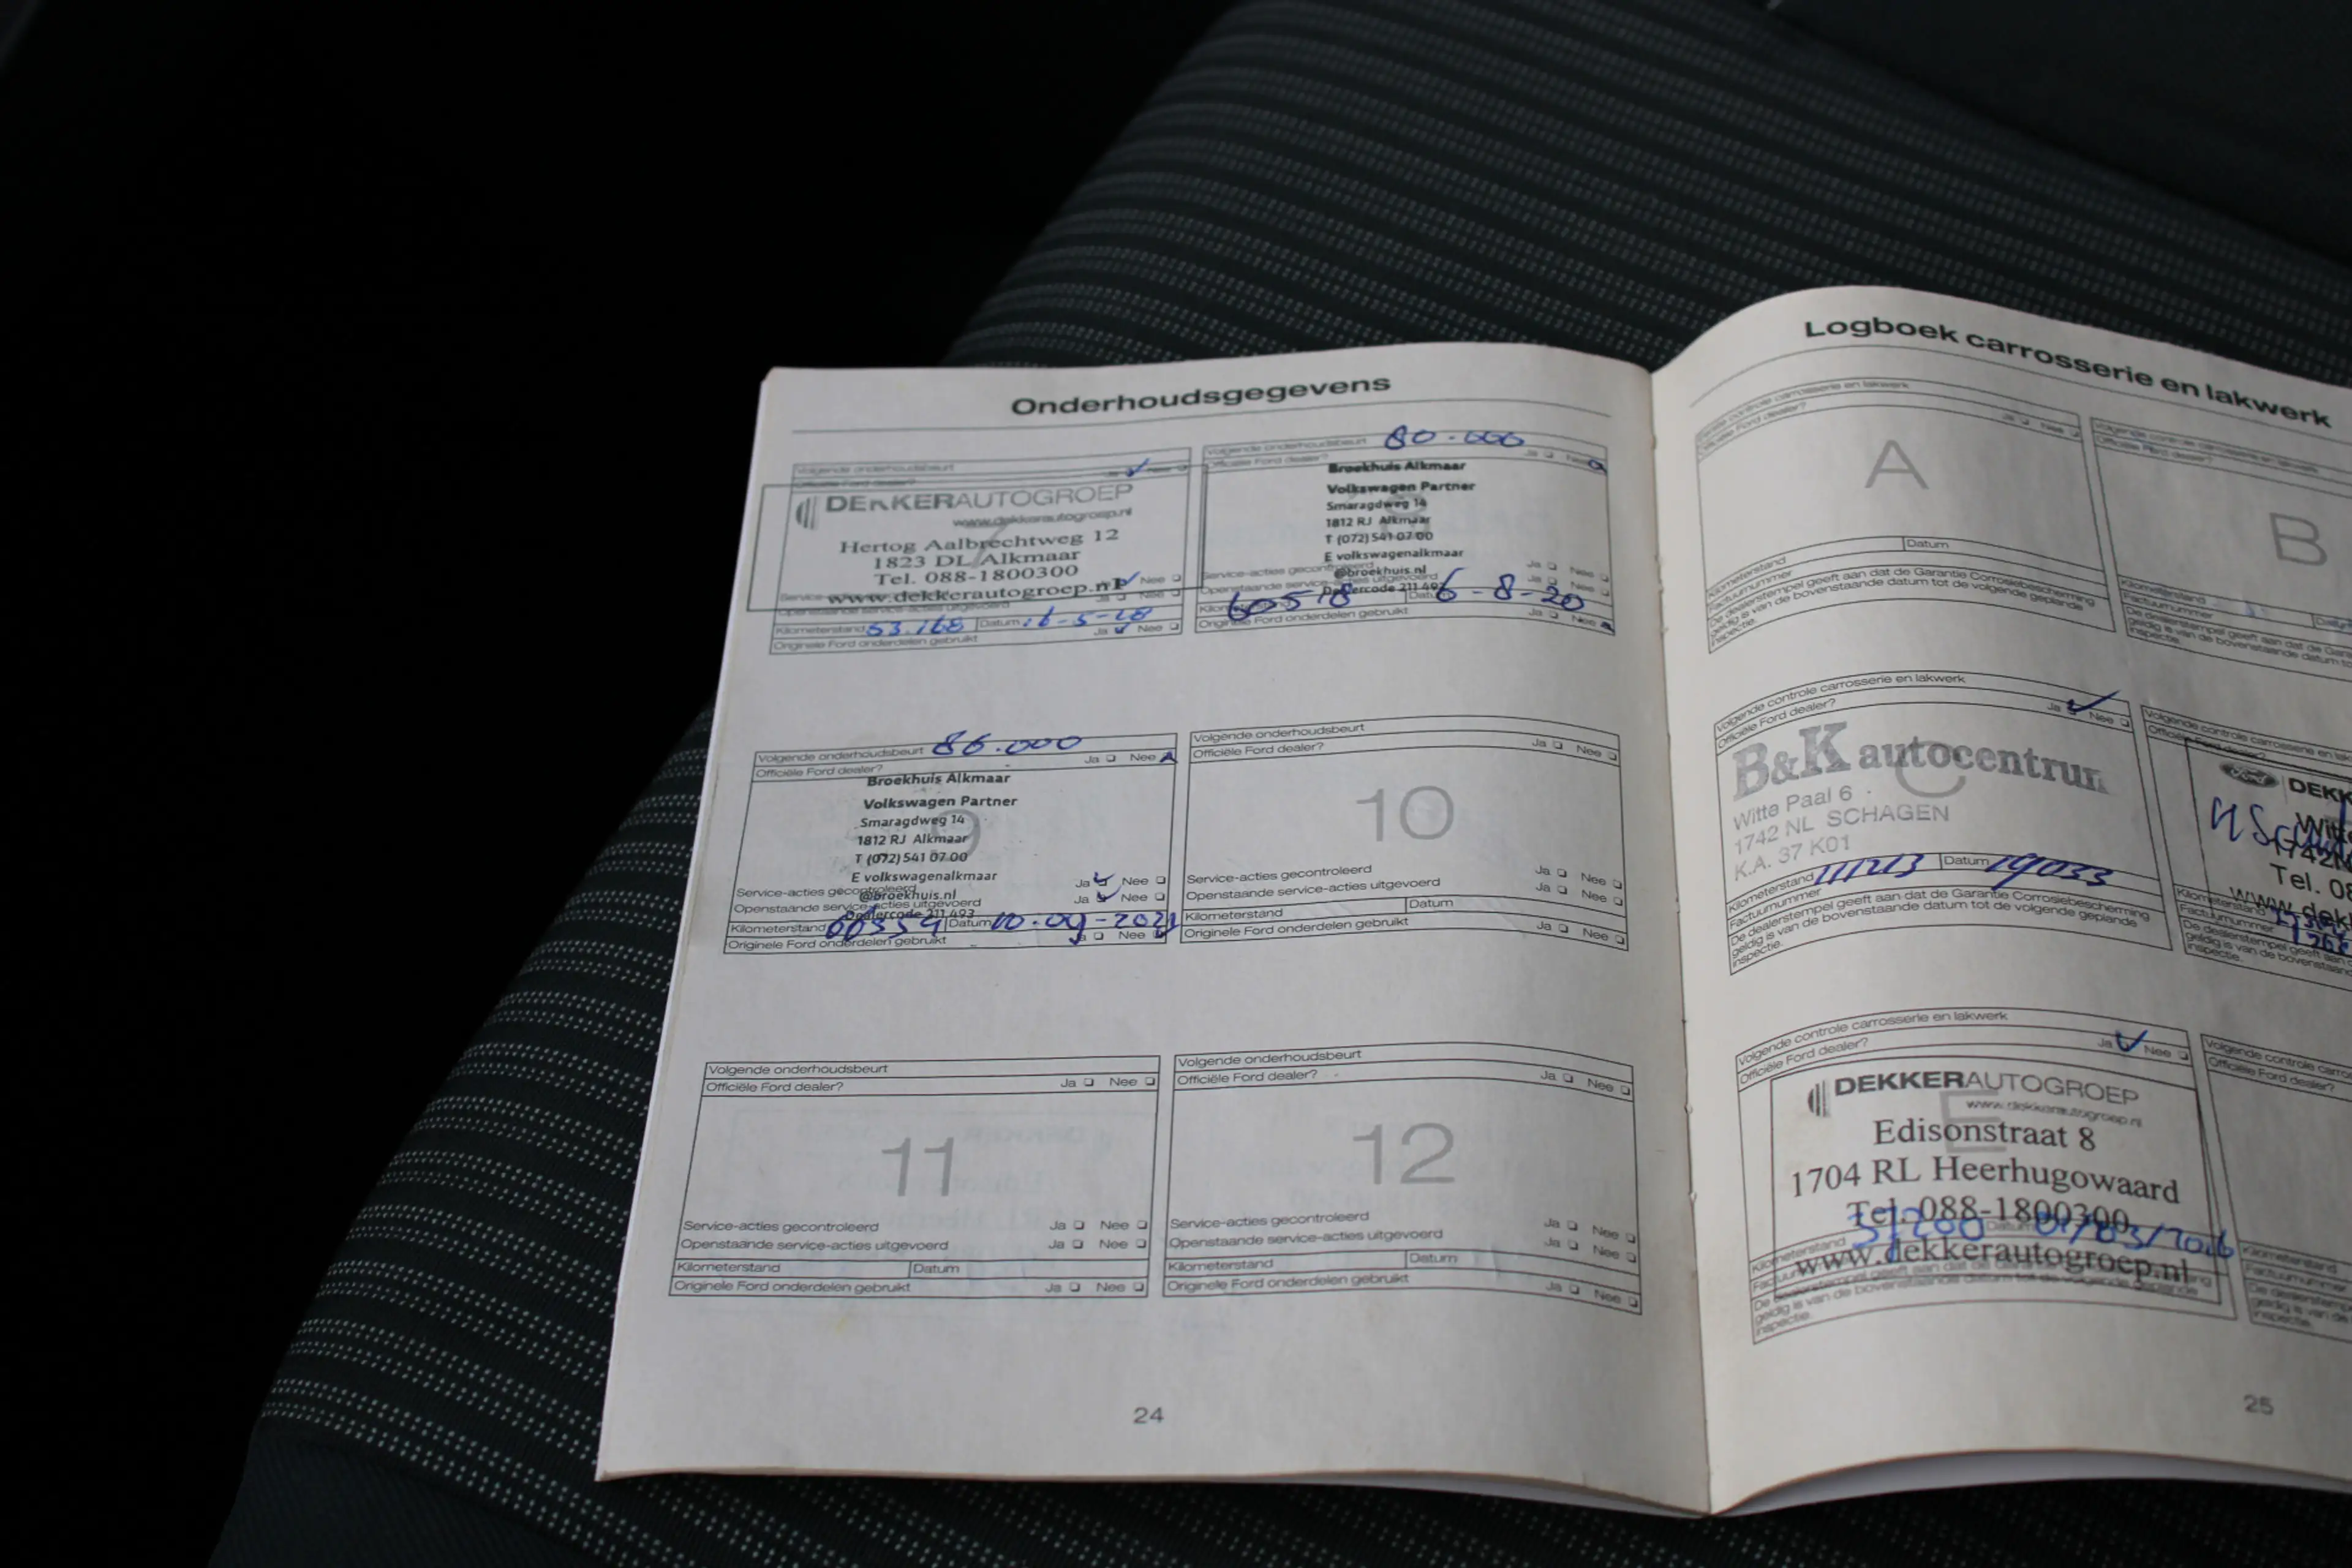 Onderhoudsgegevens
Volgende onderhoudsbeurt
Officiële Ford dealer? Ja Nee
DEKKERAUTOGROEP
www.dekkerautogroep.nl
7
Hertog Aalbrechtweg 12
1823 DL Alkmaar
Tel. 088-1800300
www.dekkerautogroep.nl
Ja Nee
Openstaande service-acties uitgevoerd Ja Nee
Kilometerstand 53.168 Datum 16-5-18
Originele Ford onderdelen gebruikt Ja Nee
Volgende onderhoudsbeurt 80.000
Officiële Ford dealer? Ja Nee
Broekhuis Alkmaar
Volkswagen Partner
8
Smaragdweg 14
1812 RJ Alkmaar
T (072) 541 07 00
E volkswagenalkmaar
@broekhuis.nl
Service-acties gecontroleerd Ja Nee
Openstaande service-acties uitgevoerd Ja Nee
Dealercode 211 493
Kilometerstand 60518 Datum 6-8-20
Originele Ford onderdelen gebruikt Ja Nee
Volgende onderhoudsbeurt 86.000
Officiële Ford dealer? Ja Nee
Broekhuis Alkmaar
Volkswagen Partner
9
Smaragdweg 14
1812 RJ Alkmaar
T (072) 541 07 00
E volkswagenalkmaar
@broekhuis.nl
Service-acties gecontroleerd Ja Nee
Openstaande service-acties uitgevoerd Ja Nee
Dealercode 211 493
Kilometerstand Datum 10-09-2021
Originele Ford onderdelen gebruikt Ja Nee
Volgende onderhoudsbeurt
Officiële Ford dealer? Ja Nee
10
Service-acties gecontroleerd Ja Nee
Openstaande service-acties uitgevoerd Ja Nee
Kilometerstand Datum
Originele Ford onderdelen gebruikt Ja Nee
Volgende onderhoudsbeurt
Officiële Ford dealer? Ja Nee
11
Service-acties gecontroleerd Ja Nee
Openstaande service-acties uitgevoerd Ja Nee
Kilometerstand Datum
Originele Ford onderdelen gebruikt Ja Nee
Volgende onderhoudsbeurt
Officiële Ford dealer? Ja Nee
12
Service-acties gecontroleerd Ja Nee
Openstaande service-acties uitgevoerd Ja Nee
Kilometerstand Datum
Originele Ford onderdelen gebruikt Ja Nee
24
Logboek carrosserie en lakwerk
Eerste controle carrosserie en lakwerk
Officiële Ford dealer? Ja Nee
A
Kilometerstand Datum
Factuurnummer
De dealerstempel geeft aan dat de Garantie Corrosiebescherming
geldig is van de bovenstaande datum tot de volgende geplande
inspectie.
Volgende controle carrosserie en lakwerk
Officiële Ford dealer?
B
Kilometerstand
Factuurnummer
De dealerstempel geeft aan dat de
geldig is van de bovenstaande datum tot
inspectie.
Volgende controle carrosserie en lakwerk
Officiële Ford dealer? Ja Nee
B&K autocentrum
C
Witte Paal 6
1742 NL SCHAGEN
K.A. 37 K01
Kilometerstand Datum 19033
Factuurnummer
De dealerstempel geeft aan dat de Garantie Corrosiebescherming
geldig is van de bovenstaande datum tot de volgende geplande
inspectie.
Ford
Tel. 08
Kilometerstand
Factuurnummer
De dealerstempel geeft aan
geldig is van de bovenstaande
inspectie.
Volgende controle carrosserie en lakwerk
Officiële Ford dealer? Ja Nee
DEKKERAUTOGROEP
www.dekkerautogroep.nl
E
Edisonstraat 8
1704 RL Heerhugowaard
Tel. 088-1800300
Kilometerstand 37200 Datum 01/03/2016
www.dekkerautogroep.nl
Factuurnummer
De dealerstempel geeft aan dat de
geldig is van de bovenstaande datum tot de volgende geplande
inspectie.
Volgende controle
Officiële Ford dealer?
Kilometerstand
Factuurnummer
De dealerstempel
geldig is van de
inspectie.
25